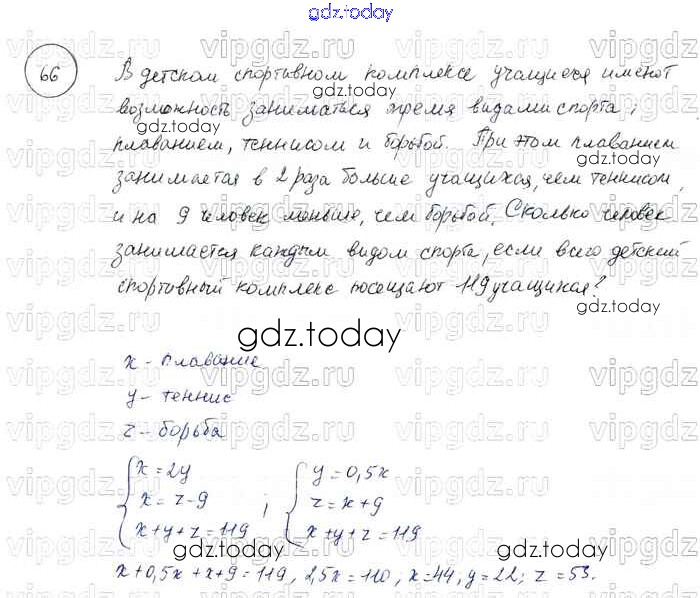 gdz.today
66
В детском спортивном комплексе учащиеся имеют
возможность заниматься тремя видами спорта:
плаванием, теннисом и борьбой. При этом плаванием
занимается в 2 раза больше учащихся, чем теннисом,
и на 9 человек меньше, чем борьбой. Сколько человек
занимается каждым видом спорта, если всего детский
спортивный комплекс посещают 119 учащихся?
gdz.today
x - плавание
y - теннис
z - борьба
{ x = 2y
x = z - 9
x + y + z = 119 ;
{ y = 0,5x
z = x + 9
x + y + z = 119
x + 0,5x + x + 9 = 119, 2,5x = 110, x = 44, y = 22; z = 53.
vipgdz.ru
gdz.today